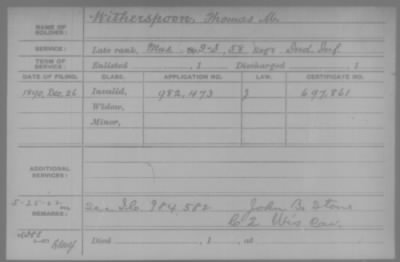 NAME OF SOLDIER: Witherspoon, Thomas M.
SERVICE: Late rank, Mus. Co. I, 58 Regt Ind Inf
TERM OF SERVICE: Enlisted , 1 Discharged , 1
DATE OF FILING. CLASS. APPLICATION NO. LAW. CERTIFICATE NO.
1890, Dec. 26 Invalid, 982,473 J 697,861
Widow,
Minor,
ADDITIONAL SERVICES:
5-25-22 984,582 John B. Stone
REMARKS: C 2 Wis Cav.
Died , 1 , at